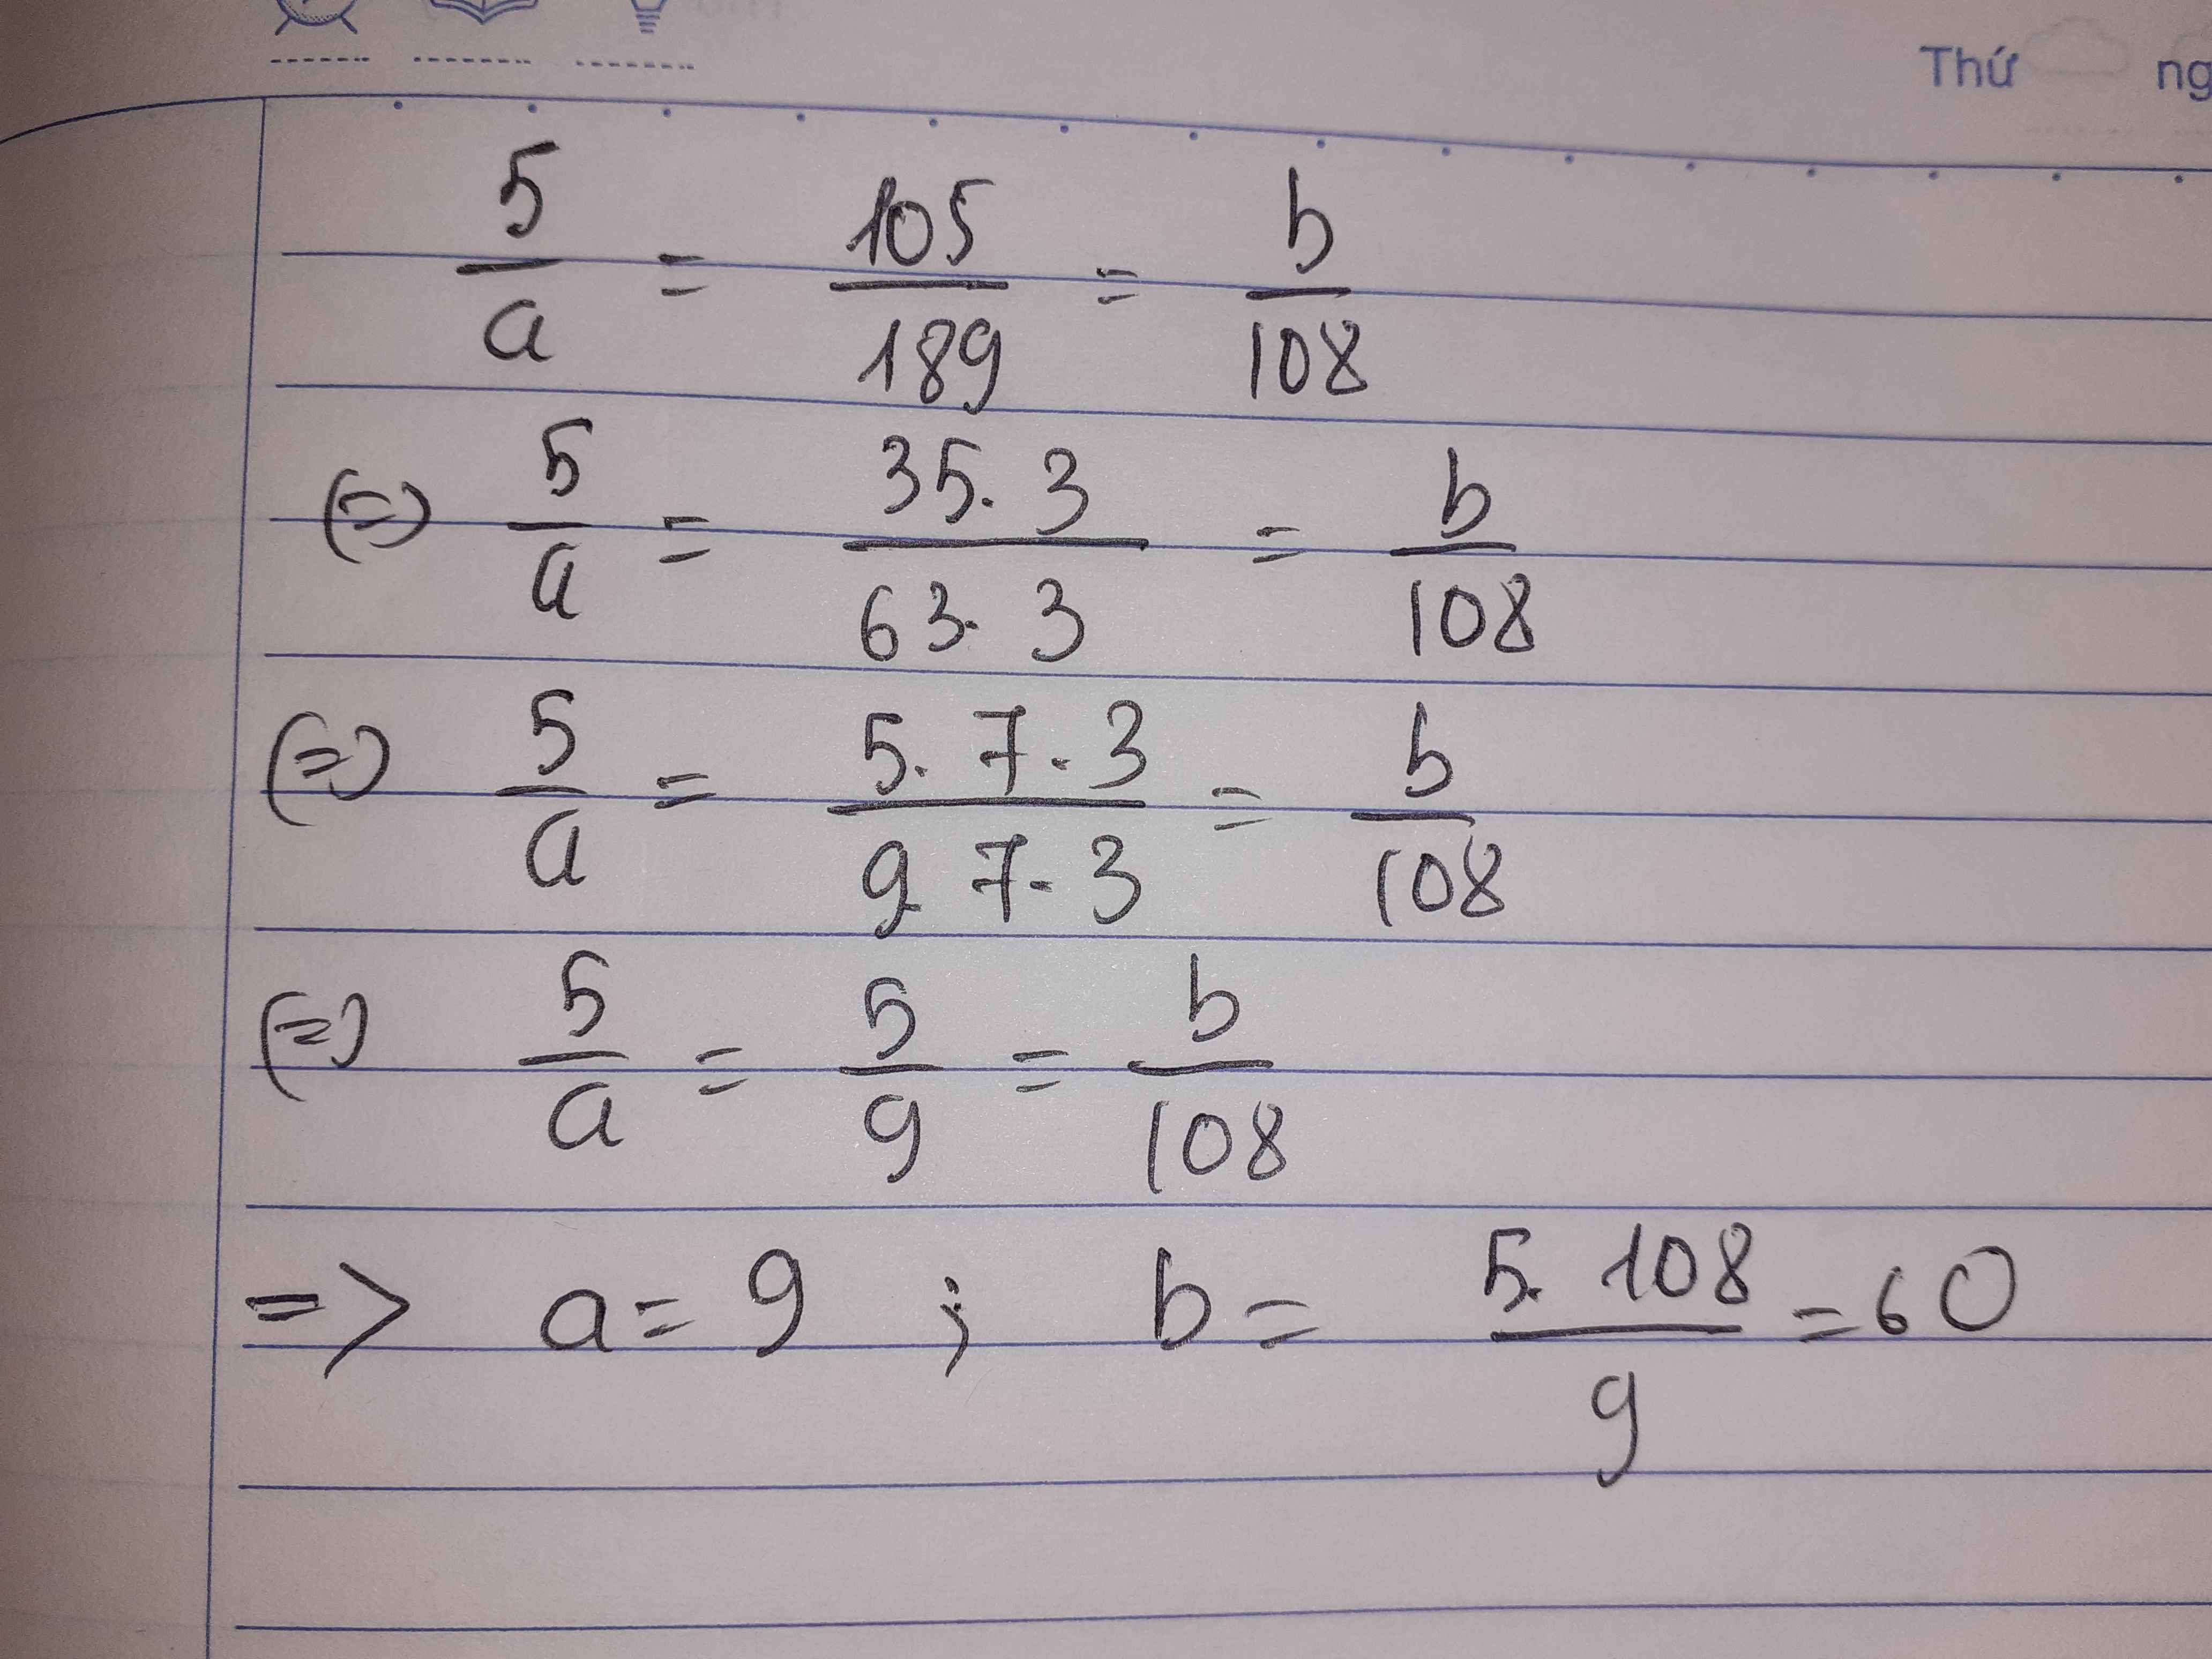 Thứ ng
5/a = 105/189 = b/108
(=) 5/a = 35. 3/63. 3 = b/108
(=) 5/a = 5. 7. 3/9 7. 3 = b/108
(=) 5/a = 5/9 = b/108
=> a = 9 ; b = 5. 108/9 = 60